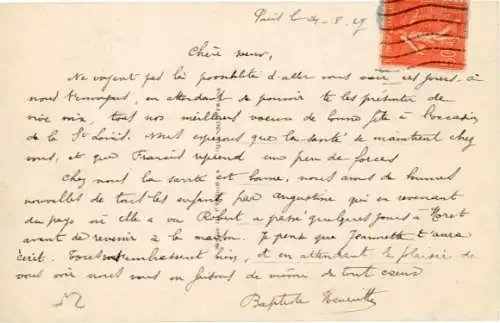 Paris le 24-8-
Chère sœur,
Ne voyant pas la possibilité d'aller vous voir ces jours-à
nous t'envoyons, en attendant de pouvoir te les présenter de
vive voix, tous nos meilleurs vœux de bonne fête à l'occasion
de la St Louis. Nous espérons que la santé se maintient chez
vous, et que Francis reprend un peu de forces
Chez nous la santé est bonne, nous avons de bonnes
nouvelles de tous les enfants par Augustine qui en revenant
du pays où elle a vu Robert a passé quelques jours à Moret
avant de revenir à la maison. Je pense que Jeannette t'aura
écrit. Tous t'embrassent bien, et en attendant le plaisir de
vous voir nous vous en faisons de même de tout cœur
Baptiste